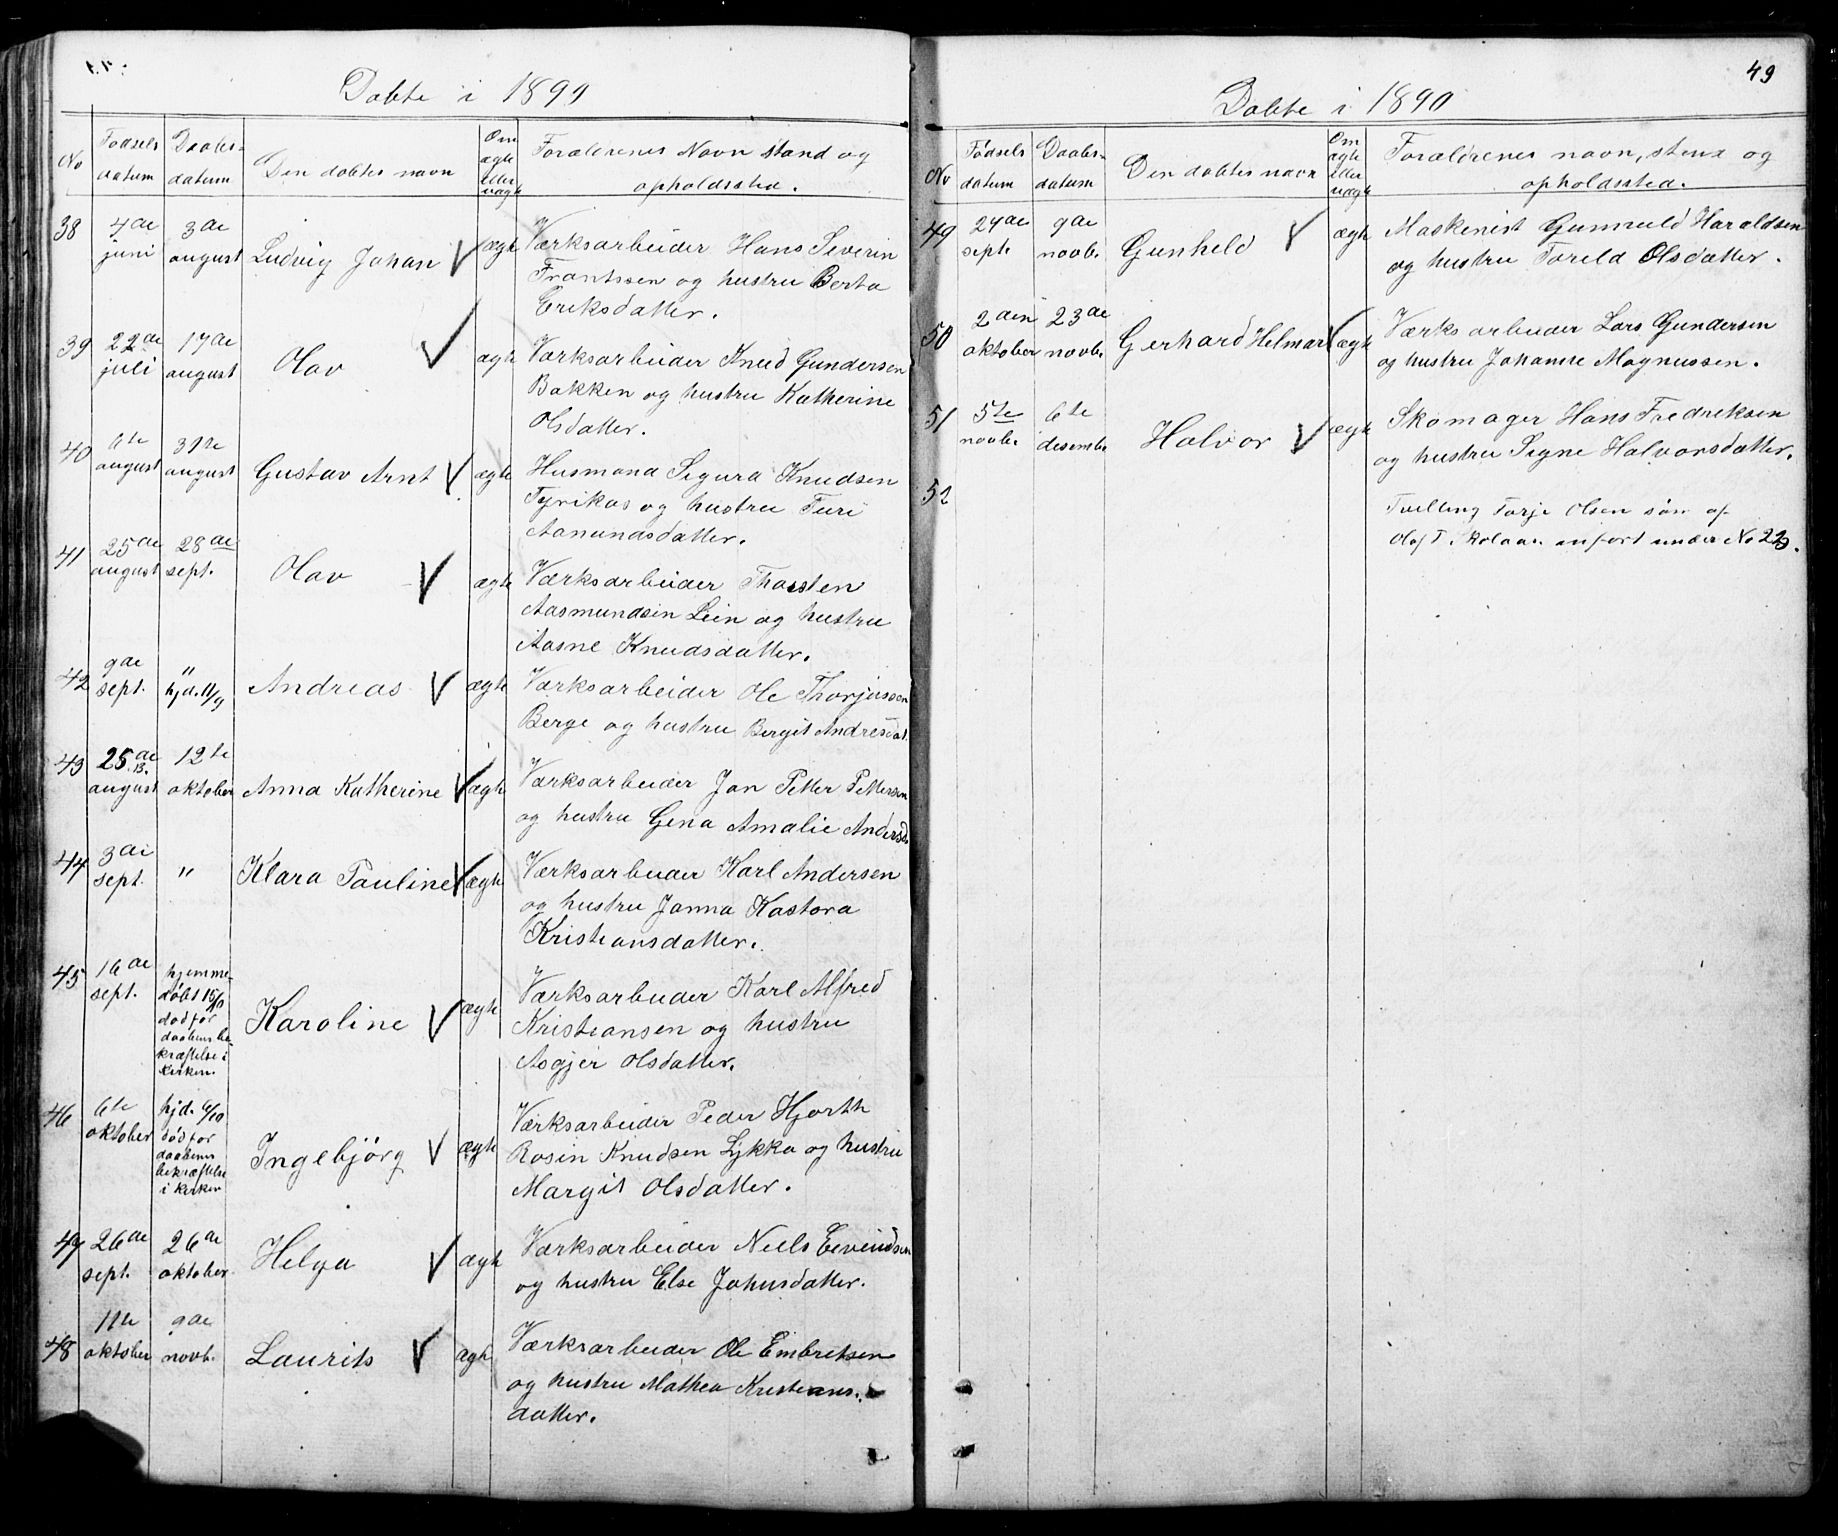 Døbte i 1890
No
Fødsels
datum
Daabs-
datum
Den døbtes navn
Om
ægte
eller
uægte
Forældrenes Navn stand og
opholdssted.
38
4de
juni
3de
august
Ludvig Johan
ægte
Værksarbeider Hans Severin
Frantssen og hustru Berta
Eriksdatter.
39
22de
juli
17de
august
Olav
ægte
Værksarbeider Knud Gundersen
Bakken og hustru Katherine
Olsdatter.
40
6te
august
31te
august
Gustav Arnt
ægte
Husmand Sigurd Knudsen
Tyrikos og hustru Turi
Aamundsdatter.
41
25de
august
28de
sept.
Olav
ægte
Værksarbeider Thorsten
Aasmundsen Lien og hustru
Aasne Knudsdatter.
42
9de
sept.
"
hjd. 11/9
Andreas
ægte
Værksarbeider Ole Thorjussen
Berge og hustru Bergit Andresdat.
43
25de
august
12te
oktober
Anna Katherine
ægte
Værksarbeider Jan Petter Pettersen
og hustru Gena Amalie Andersd
44
3de
sept.
"
Klara Pauline
ægte
Værksarbeider Karl Andersen
og hustru Janna Kastora
Kristiansdatter.
45
16de
sept.
hjemme-
døbt 15/10
død før
daabens be-
kræftelse i
kirken.
Karoline
ægte
Værksarbeider Karl Alfred
Kristiansen og hustru
Asgjer Olsdatter.
46
6te
oktober
hjd. 6/10
død før
daabens
bekræftelse
i kirken
Ingebjörg
ægte
Værksarbeider Peder Hjorth
Rosin Knudsen Lykka og hustru
Margit Olsdatter.
47
26de
sept.
26de
oktober
Helga
ægte
Værksarbeider Niels Eevindsen
og hustru Else Johnsdatter.
48
11te
oktober
9de
novb.
Laurits
ægte
Værksarbeider Ole Embretsen
og hustru Mathea Kristians-
datter.
49
Døbte i 1890
No
Fødsels
datum
Daabs-
datum
Den døbtes navn
Om
ægte
eller
uægte
Forældrenes navn, stand og
opholdssted.
49
24de
sept.
9de
novb.
Gunheld
ægte
Maskenist Gunnuld Haroldsen
og hustru Toreld Olsdatter.
50
2den
oktober
23de
novb.
Gerhard Helmar
ægte
Værksarbeider Lars Gundersen
og hustru Johanne Magnussen.
51
5te
novbr
6te
desember
Halvor
ægte
Skomager Hans Fredriksen
og hustru Signe Halvorsdatter.
52
Tvilling Torje Olsen søn af
Olaf T. indført under No 22.